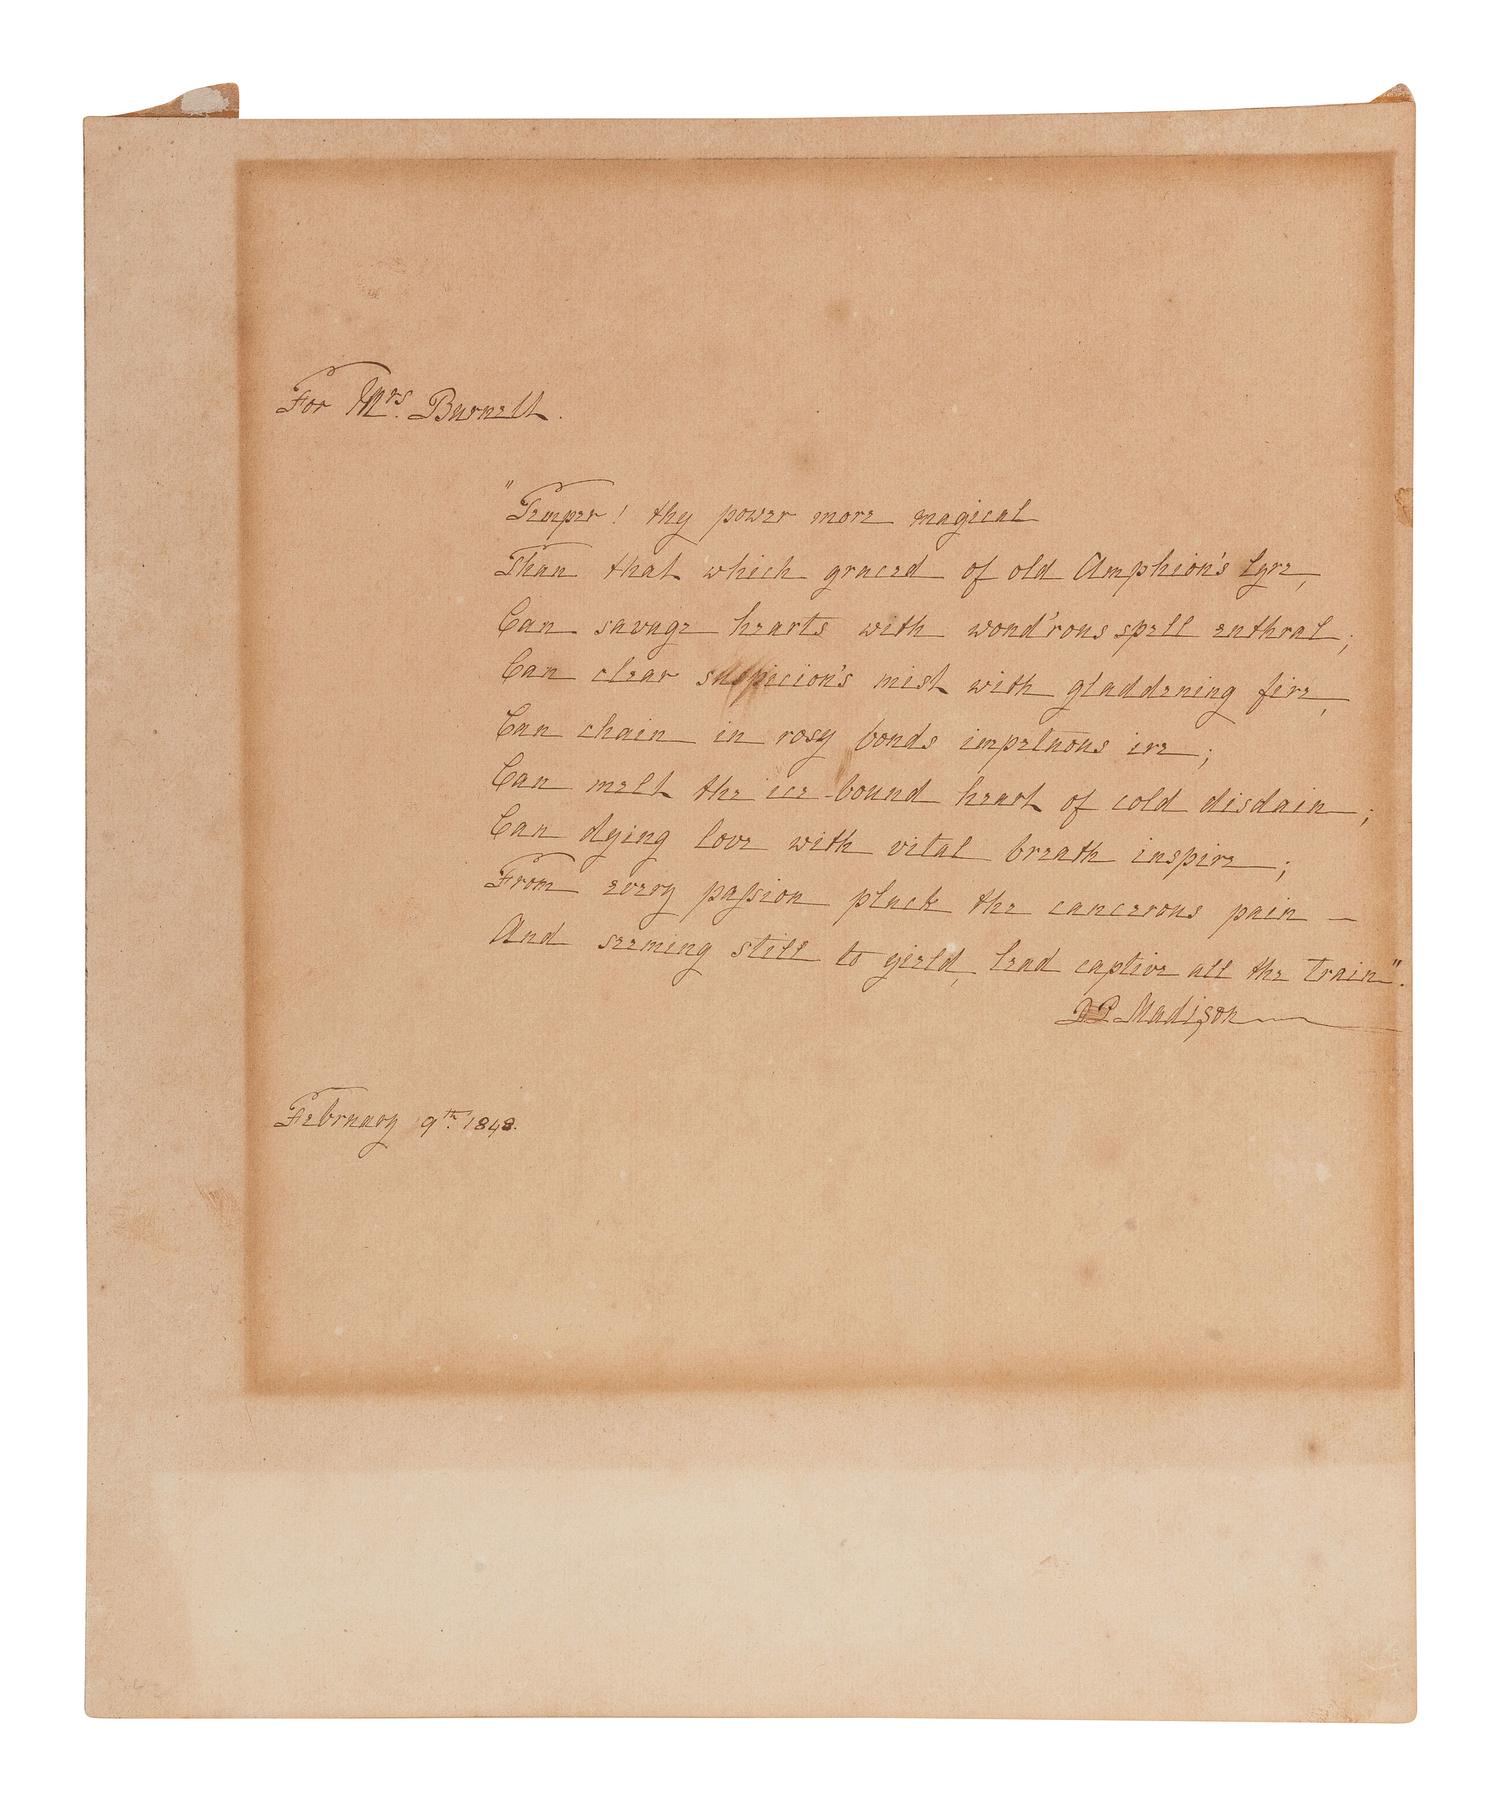 For Mrs. Burnett.
"Temper! thy power more magical
Than that which graced of old Amphion's lyre,
Can savage hearts with wond'rous spell enthral;
Can clear suspicion's mist with gladdening fire,
Can chain in rosy bonds impetuous ire;
Can melt the ice-bound heart of cold disdain;
Can dying love with vital breath inspire;
From every paſsion pluck the cancerous pain —
And seeming still to yield, lead captive all the train".
D P. Madison
February 9th. 1848.